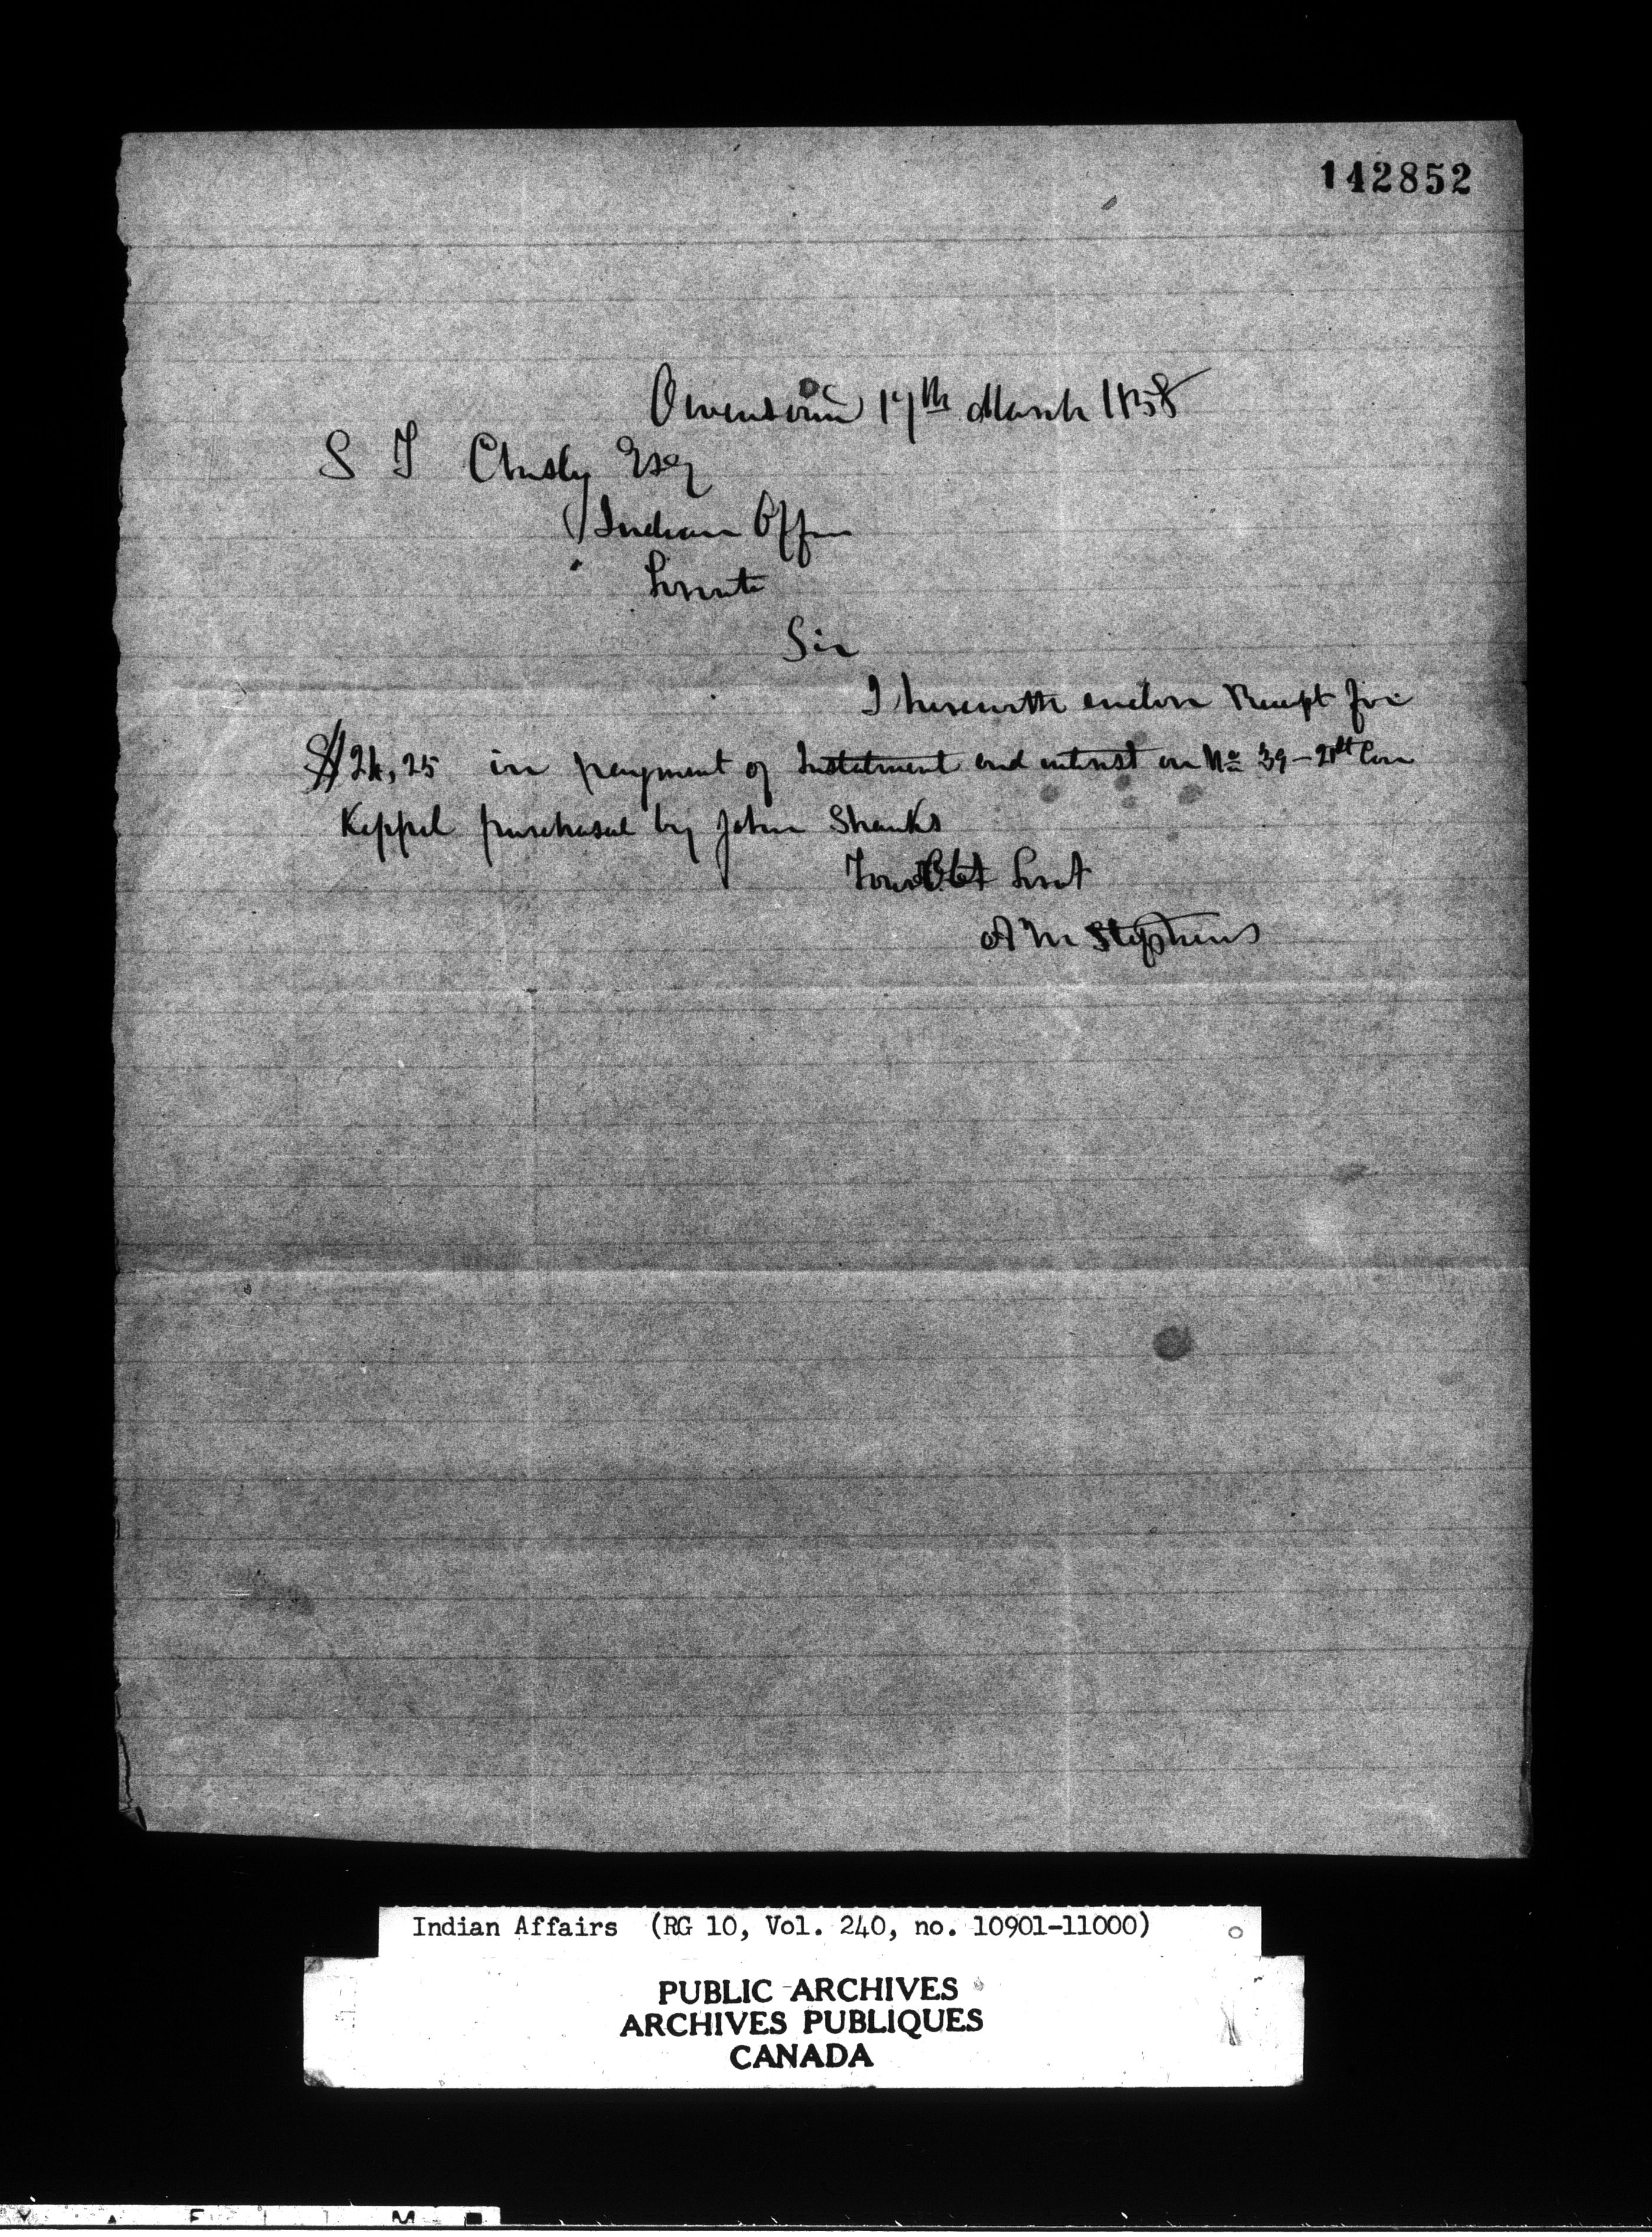 142852
Owensound 17th March 1858
S Y Chesley Esq
Indian Office
Toronto
Sir
I herewith enclose Receipt for
$24,25 in payment of Instalment and interest on No 39 - 21st Con
Keppel purchased by John Shanks
Your Obt Servt
A M Stephens
Indian Affairs (RG 10, Vol. 240, no. 10901-11000)
PUBLIC ARCHIVES
ARCHIVES PUBLIQUES
CANADA